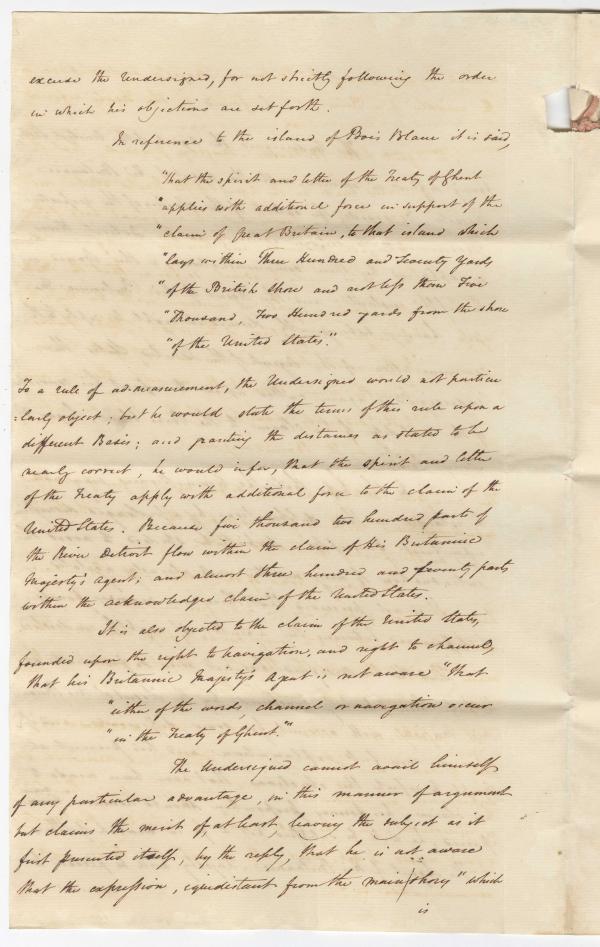 excuse the undersigned, for not strictly following the order
in which his objections are set forth.
In reference to the island of Bois Blanc it is said,
"That the spirit and letter of the Treaty of Ghent
"applies with additional force in support of the
"claim of Great Britain, to that island which
"lays within Three Hundred and Seventy Yards
"of the British Shore and not less than Five
"Thousand, Two Hundred yards from the shore
"of the United States."
To a rule of admeasurement, the Undersigned would not particu
=larly object; but he would state the terms of this rule upon a
different Basis; and granting the distances as stated to be
nearly correct, he would infer, that the spirit and letter
of the Treaty apply with additional force to the claim of the
United States. Because five thousand two hundred parts of
the River Detroit flow within the claim of His Britannic
Majesty's agent; and almost three hundred and seventy parts
within the acknowledged claim of the United States.
It is also objected to the claim of the United States,
founded upon the right to navigation, and right to channel,
that his Britannic Majesty's Agent is not aware "that
"either of the words, channel or navigation occur
"in the Treaty of Ghent."
The Undersigned cannot avail himself
of any particular advantage, in this manner of argument
but claims the merit of, at least, leaving the subject as it
first presented itself, by the reply, that he is not aware
that the expression, equidistant from the main shores" which
is